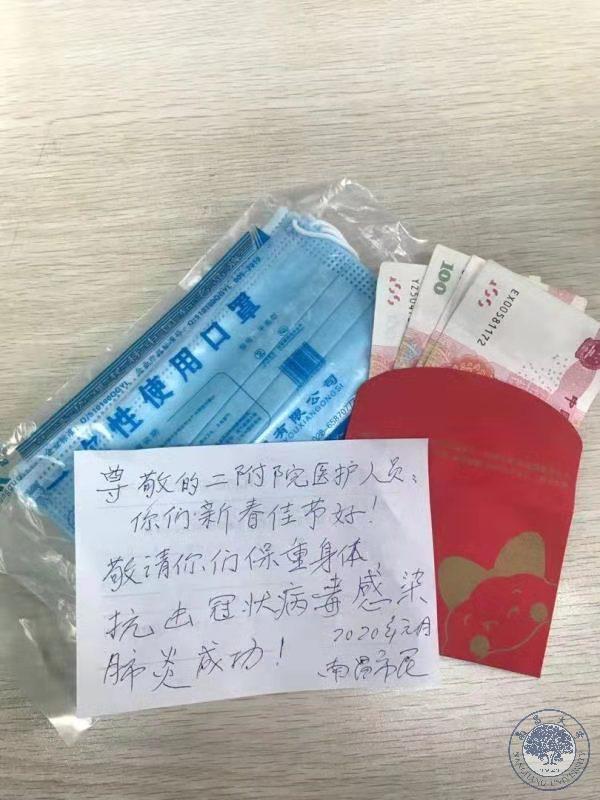 100
EX00581172
一次性使用口罩
有限公司
尊敬的二附院医护人员:
你们新春佳节好!
敬请你们保重身体
抗击冠状病毒感染
肺炎成功!
2020年元月
南昌市民
南昌大学
NANCHANG UNIVERSITY